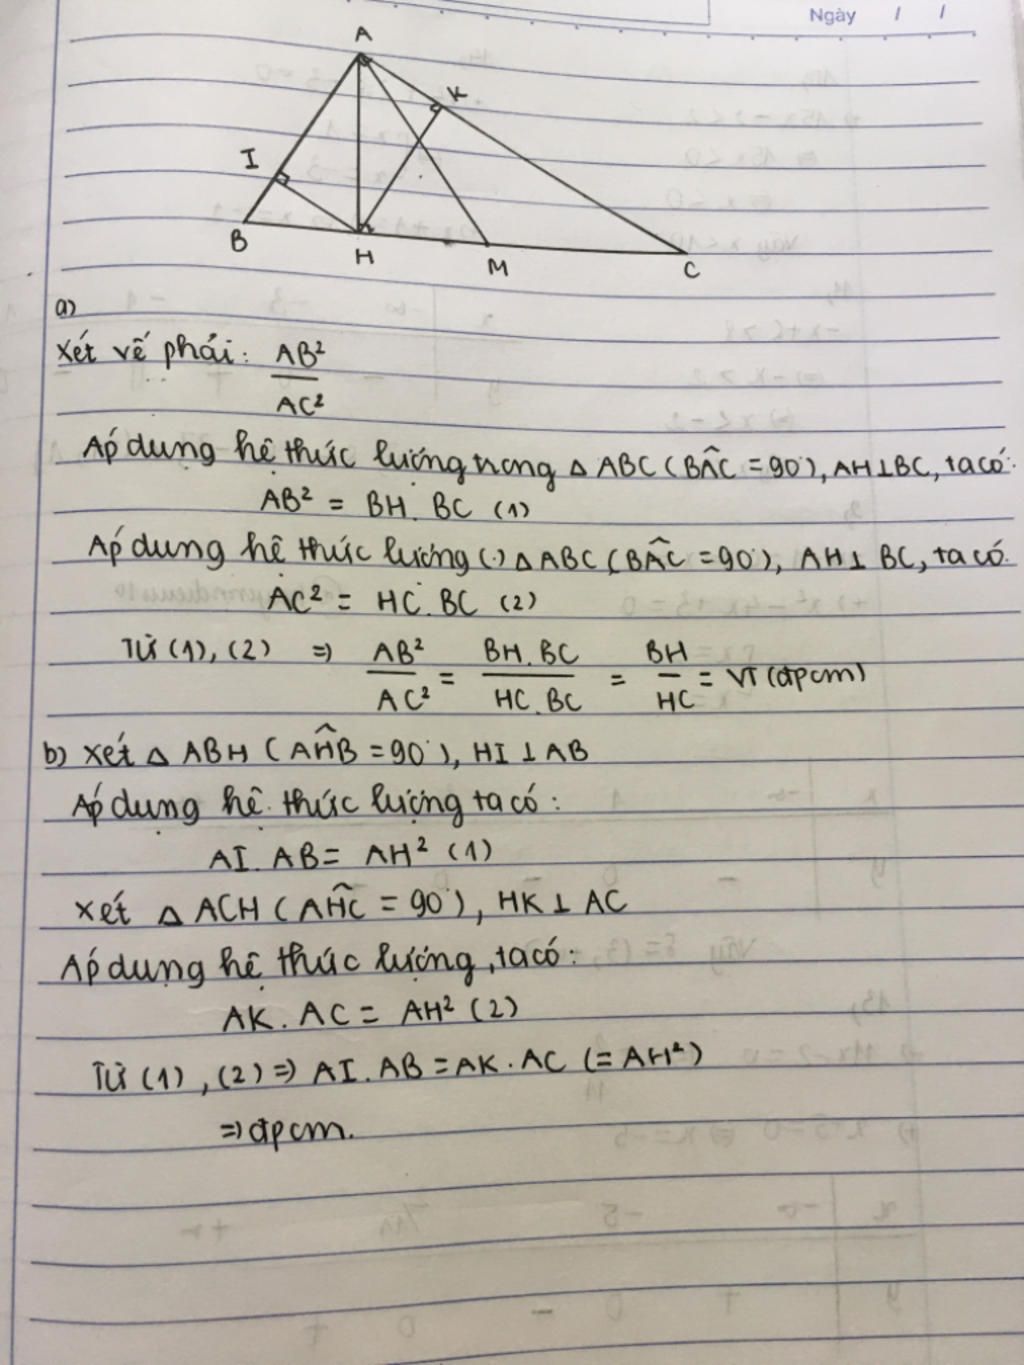 Ngày / /
A
K
I
B
H
M
C
a)
Xét vế phải: AB²/AC²
Áp dụng hệ thức lượng trong △ ABC (BÂC = 90°), AH⊥BC, ta có:
AB² = BH. BC (1)
Áp dụng hệ thức lượng (.) △ ABC (BÂC = 90°), AH ⊥ BC, ta có:
AC² = HC. BC (2)
Từ (1), (2) ⇒ AB²/AC² = BH. BC/HC. BC = BH/HC = VT (đpcm)
b) Xét △ ABH (AĤB = 90°), HI ⊥ AB
Áp dụng hệ thức lượng ta có:
AI. AB = AH² (1)
Xét △ ACH (AĤC = 90°), HK ⊥ AC
Áp dụng hệ thức lượng, ta có:
AK. AC = AH² (2)
Từ (1), (2) ⇒ AI. AB = AK. AC (= AH²)
⇒ đpcm.